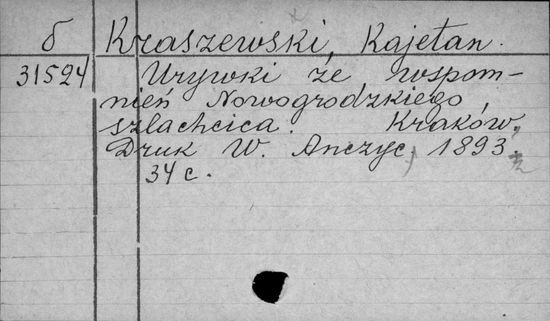 б Kraszewski, Kajetan.
31524 Urywki ze wspom-
nień Nowogrodzkiego
szlachcica. Kraków,
Druk W. Anczyc, 1893.
34 c.